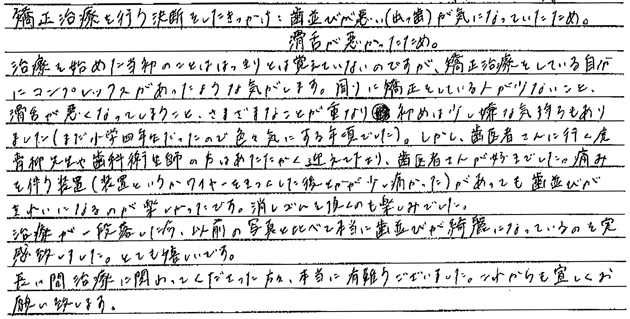 矯正治療を行う決断をしたきっかけ：歯並びが悪い(出っ歯)が気になっていたため。
滑舌が悪かったため。
治療を始めた当初のことははっきりとは覚えていないのですが、矯正治療をしている自分
にコンプレックスがあったような気がします。周りに矯正をしている人が少ないこと、
滑舌が悪くなってしまうこと、さまざまなことが重なり初めは少し嫌な気持ちもあり
ました(まだ小学四年生だったので色々気にする年頃でした)。しかし、歯医者さんに行く度
青柳先生や歯科衛生師の方はあたたかく迎えて下さり、歯医者さんが好きでした。痛み
を伴う装置(装置というかワイヤーをきつくした後とかが少し痛かった)があっても歯並びが
きれいになるのが楽しかったです。消しゴムを頂くのも楽しみでした。
治療が一段落した今、以前の写真と比べて本当に歯並びが綺麗になっているのを実
感致しました。とても嬉しいです。
長い間治療に関わってくださった方々、本当に有難うございました。これからも宜しくお
願い致します。